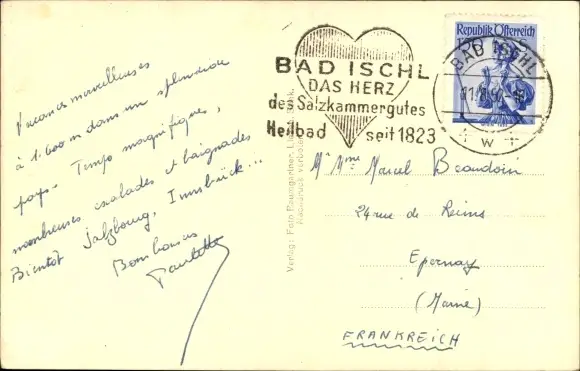 Vacances merveilleuses
à 1.600 m dans un splendide
pays. Temps magnifique,
nombreuses escalades et baignades
Bientôt Salzbourg, Innsbrück...
Bons baisers
Paulette
Verlag: Foto Baumgartner,
Nachdruck verboten
BAD ISCHL
DAS HERZ
des Salzkammergutes
Heilbad seit 1823
Republik Österreich
BAD ISCHL
W
Mr Mme Marcel Beaudoin
24 rue de Reims
Epernay
(Marne)
FRANKREICH